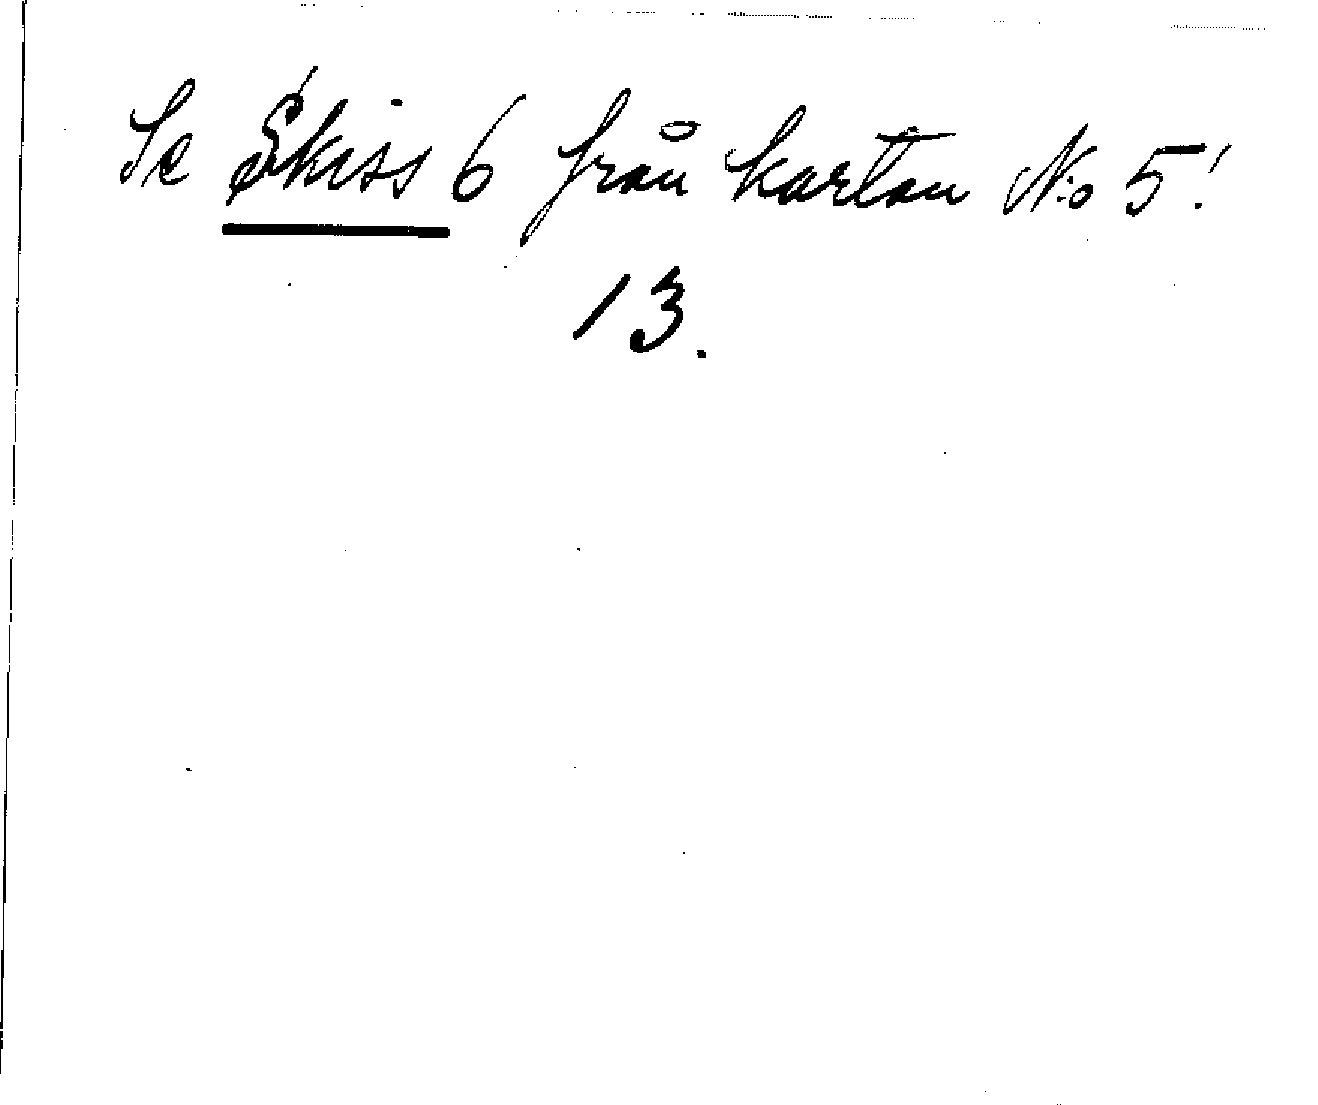 Se Skiss 6 från kartan No 5!
13.